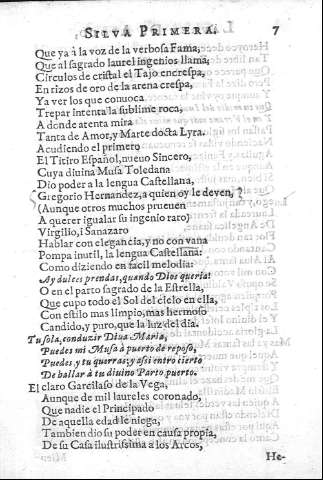 SILVA PRIMERA. 7
Que ya à la voz de la verbosa Fama,
Que al sagrado laurel ingenios llama,
Circulos de cristal el Tajo encrespa,
En rizos de oro de la arena crespa,
Ya ver los que conuoca
Trepar intenta la sublime roca,
A donde atenta mira
Tanta de Amor, y Marte docta Lyra.
Acudiendo el primero
El Titiro Español, nueuo Sincero,
Cuya diuina Musa Toledana
Dio poder a la lengua Castellana,
Gregorio Hernandez, a quien oy le deven,
(Aunque otros muchos prueuen
A querer igualar su ingenio raro)
Virgilio, i Sanazaro
Hablar con elegancia, y no con vana
Pompa inutil, la lengua Castellana:
Como diziendo en facil melodia:
Ay dulces prendas, quando Dios queria!
O en el parto sagrado de la Estrella,
Que cupo todo el Sol del cielo en ella,
Con estilo mas limpio, mas hermoso
Candido, y puro, que la luz del dia.
Tu sola, conduzir Diua Maria,
Puedes mi Musa à puerto de reposo,
Puedes, y tu querras; y assi entro cierto
De hallar à tu diuino Parto puerto.
El claro Garcilaso de la Vega,
Aunque de mil laureles coronado,
Que nadie el Principado
De aquella edad le niega,
Tambien dio su poder en causa propia,
De su Casa ilustrissima a los Arcos,
He-